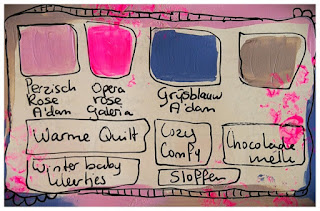 Perzisch
Rose
A'dam
Opera
rose
Galeria
Grijsblauw
A'dam
Warme Quilt
Cozy
Comfy
Chocolade
melk
Winter baby
Sloffen